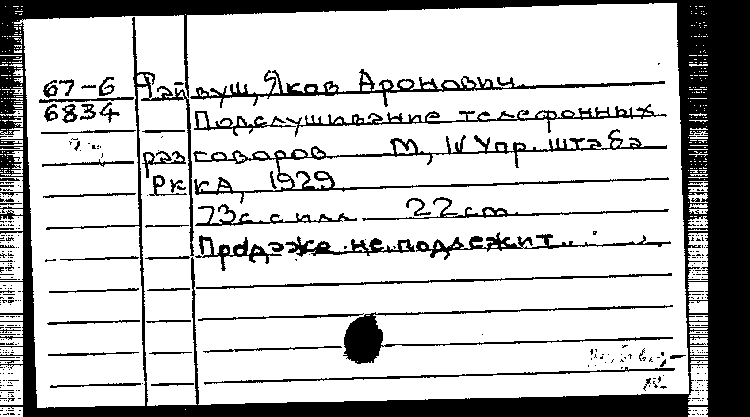 67-6 Файвуш, Яков Аронович
6834 Подслушивание телефонных
разговоров М, IV Упр. штаба
РККА, 1929
73с. с илл. 22 cm
Продаже не подлежит.